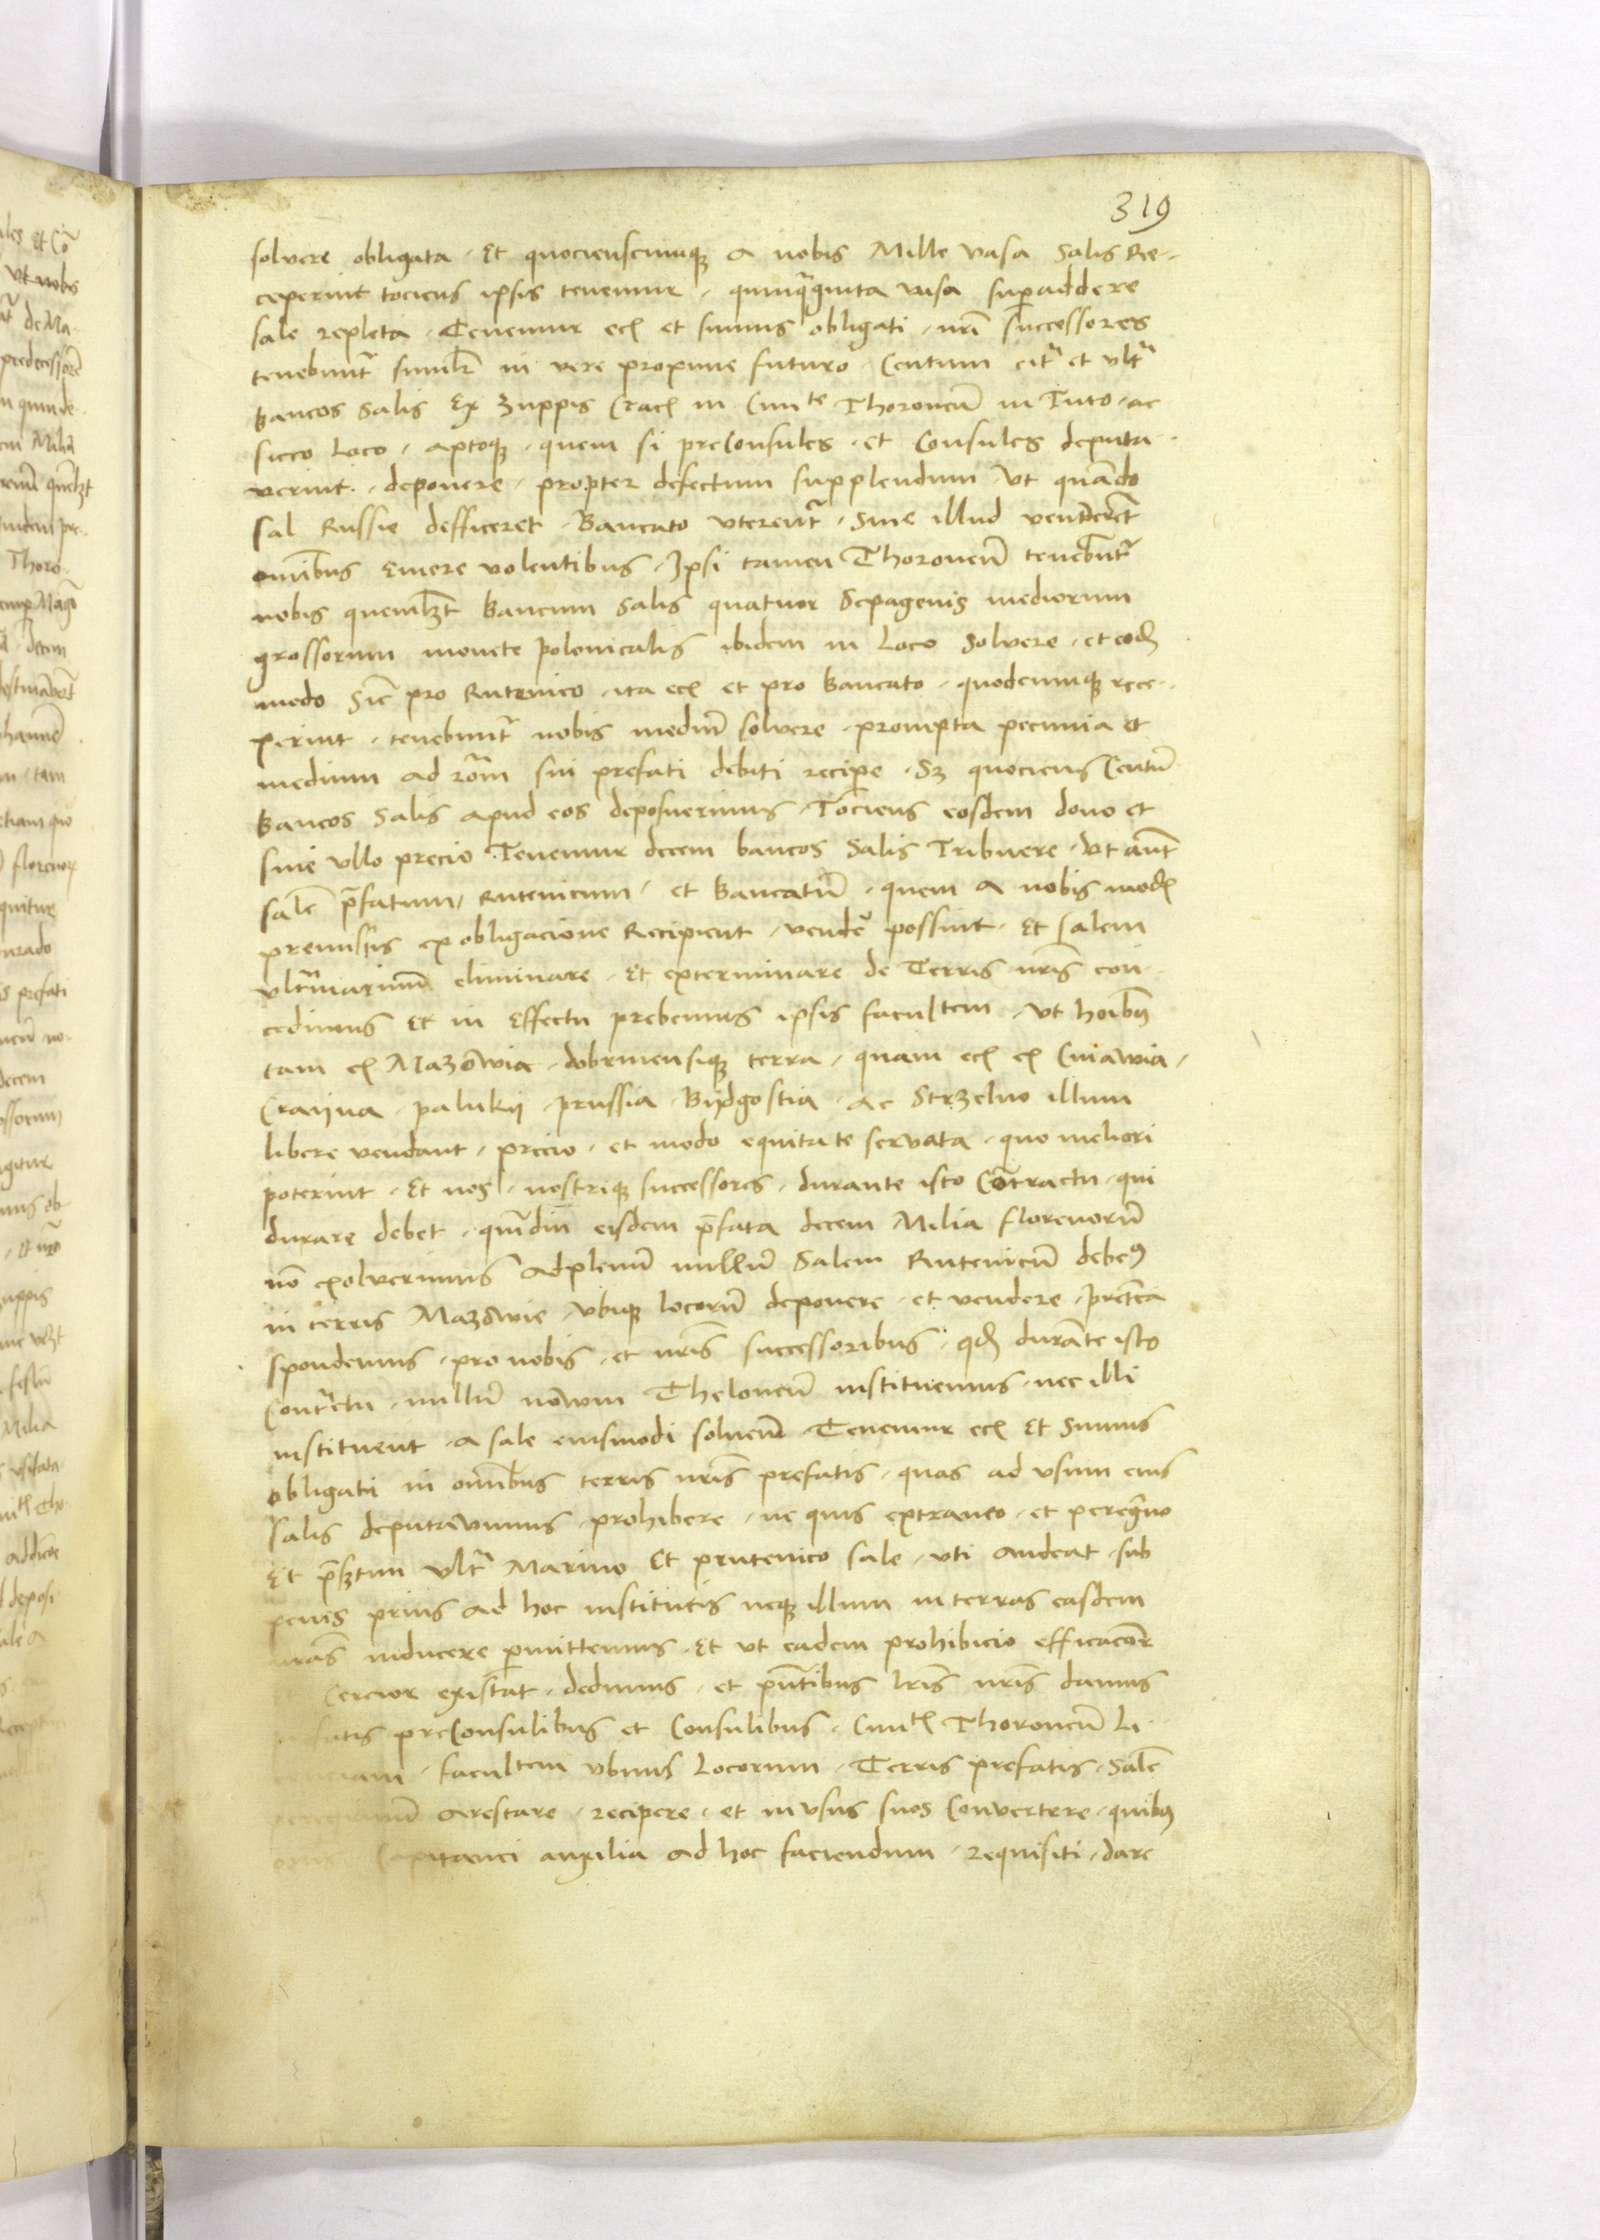 319
solvere obligata · Et quocienscumq̃ a nobis Mille vasa Salis Re-
ceperint tociens ipsis tenemur · quinq̃ginta vasa sup̱addere
sale repleta · Tenemur ecꝭ et sumus obligati · nr̃i successores
tenebunt᷑ simil̃r in vere proxime futuro · Centum citᷓ et vltᷓ
bancos Salis Ex Zuppis Cracꝭ in Ciuᵗᵉ Thoronen̄ in Tuto · ac
sicco loco · aptoq̃ · quem si preConsules · et Consules deputa-
verint · deponere · propter defectum supplendum Vt quãdo
sal Russie defficeret · Bancato vterent᷑ · Sine illud venderent
om̃ibus Emere volentibus · Ipsi tamen Thoronen̄ tenebunt᷑
nobis quemlꝫt bancum Salis quatuor Sexagenis mediorum
grossorum monete polonicalis ibidem in Loco Solvere · et eodꝭ
modo Sic̃ pro Rutenico · ita ecꝭ et pro bancato · quodcumq̃ rece-
perint · tenebunt᷑ nobis mediũ solvere · prompta pecunia et
medium ad rõm sui prefati debiti recipe · Sꝫ quociens Centũ
bancos Salis apud eos deposuerimus · Tociens eosdem dono et
sine vllo precio Tenemur decem bancos Salis Tribuere · Vt aut̃
salẽ p̃fatum Rutenicum · et bancatũ · quem a nobis modꝭ
premissis ex obligacione Recipient · vendẽ possint · Et Salem
vltᷓmarinũ eliminare · Et exterminare de Terris nr̃is con-
cedimus Et in Effectu prebemus ipsis facultem · Vt hoĩbꝰ
tam eꝭ Mazowia · dobrinensiq̃ terra · quam ecꝭ eꝭ Cuiawia ·
Crayna · palukij · prussia · Bijdgostia · Ac Strzelno illum
libere vendant · precio · et modo equitate servata · quo meliori
poterint · Et nos · nostriq̃ successores · durante isto Cõtractu · qui
durare debet · quãdiu eisdem p̃fata decem Milia florenorũ
nõ exolverimus Adplenũ nullũ Salem Rutenicũ debeꝰ
in terris Mazowie · vbiq̃ locorũ deponere · et vendere · pret̃ea
spondemus · pro nobis · et nr̃is successoribus · qꝺ durãte isto
Contᷓctu · nullũ nowum Theloneũ instituemus · nec illi
instituent · A sale eiusmodi solvenð · Tenemur ecꝭ Et Sumus
obligati in om̃ibus terris nr̃is prefatis · quas ad vsum eius
salis deputavimus · prohibere · ne quis extraneo · et peregr̃no
Et p̃sertim vltᷓ Marino Et prutenico sale · vti audeat · sub
penis prius ad hoc institutis neq̃ illum in terras easdem
nr̃as inducere p̱mittemus · Et vt eadem prohibicio efficacior
Cercior existat · dedimus · et p̃ntibus lr̃is nr̃is damus
preConsulibus et Consulibus · Ciuitꝭ Thoronen̄ Li-
facultem vbiuis Locorum · Terris prefatis · Salẽ
arestare · recipere · et in vsus suos Convertere · quibꝰ
Capitanei auxilia ad hoc faciendum · requisiti · dare